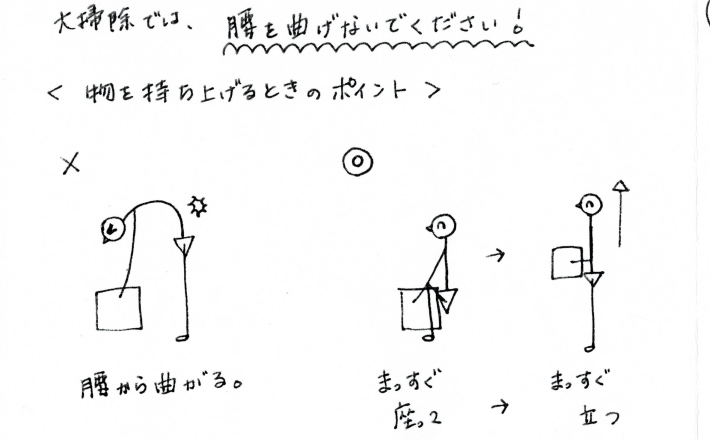 大掃除では、腰を曲げないでください!
< 物を持ち上げるときのポイント >
× ◎
→
腰から曲がる。
まっすぐ まっすぐ
座って → 立つ